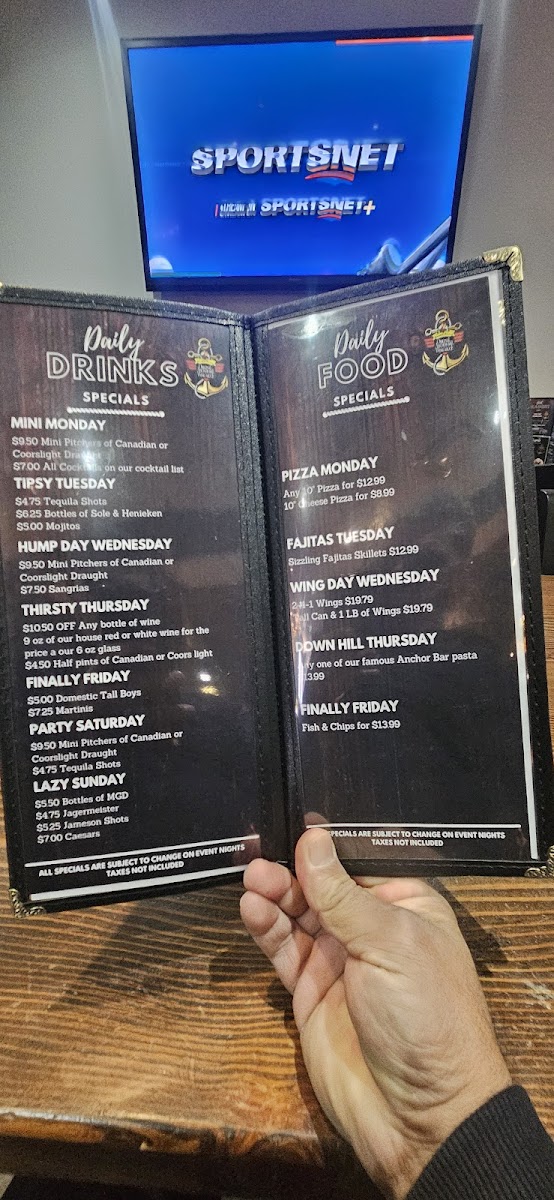 SPORTSNET
SPORTSNET+
Daily
DRINKS
SPECIALS
MINI MONDAY
$9.50 Mini Pitchers of Canadian or
Coorslight Draught
$7.00 All Cocktails on our cocktail list
TIPSY TUESDAY
$4.75 Tequila Shots
$6.25 Bottles of Sole & Henieken
$5.00 Mojitos
HUMP DAY WEDNESDAY
$9.50 Mini Pitchers of Canadian or
Coorslight Draught
$7.50 Sangrias
THIRSTY THURSDAY
$10.50 OFF Any bottle of wine
9 oz of our house red or white wine for the
price a our 6 oz glass
$4.50 Half pints of Canadian or Coors light
FINALLY FRIDAY
$5.00 Domestic Tall Boys
$7.25 Martinis
PARTY SATURDAY
$9.50 Mini Pitchers of Canadian or
Coorslight Draught
$4.75 Tequila Shots
LAZY SUNDAY
$5.50 Bottles of MGD
$4.75 Jagermeister
$5.25 Jameson Shots
$7.00 Caesars
ALL SPECIALS ARE SUBJECT TO CHANGE ON EVENT NIGHTS
TAXES NOT INCLUDED
Daily
FOOD
SPECIALS
PIZZA MONDAY
Any 10" Pizza for $12.99
10" Cheese Pizza for $8.99
FAJITAS TUESDAY
Sizzling Fajitas Skillets $12.99
WING DAY WEDNESDAY
2-4-1 Wings $19.79
Tall Can & 1 LB of Wings $19.79
DOWN HILL THURSDAY
Any one of our famous Anchor Bar pasta
$13.99
FINALLY FRIDAY
Fish & Chips for $13.99
SPECIALS ARE SUBJECT TO CHANGE ON EVENT NIGHTS
TAXES NOT INCLUDED